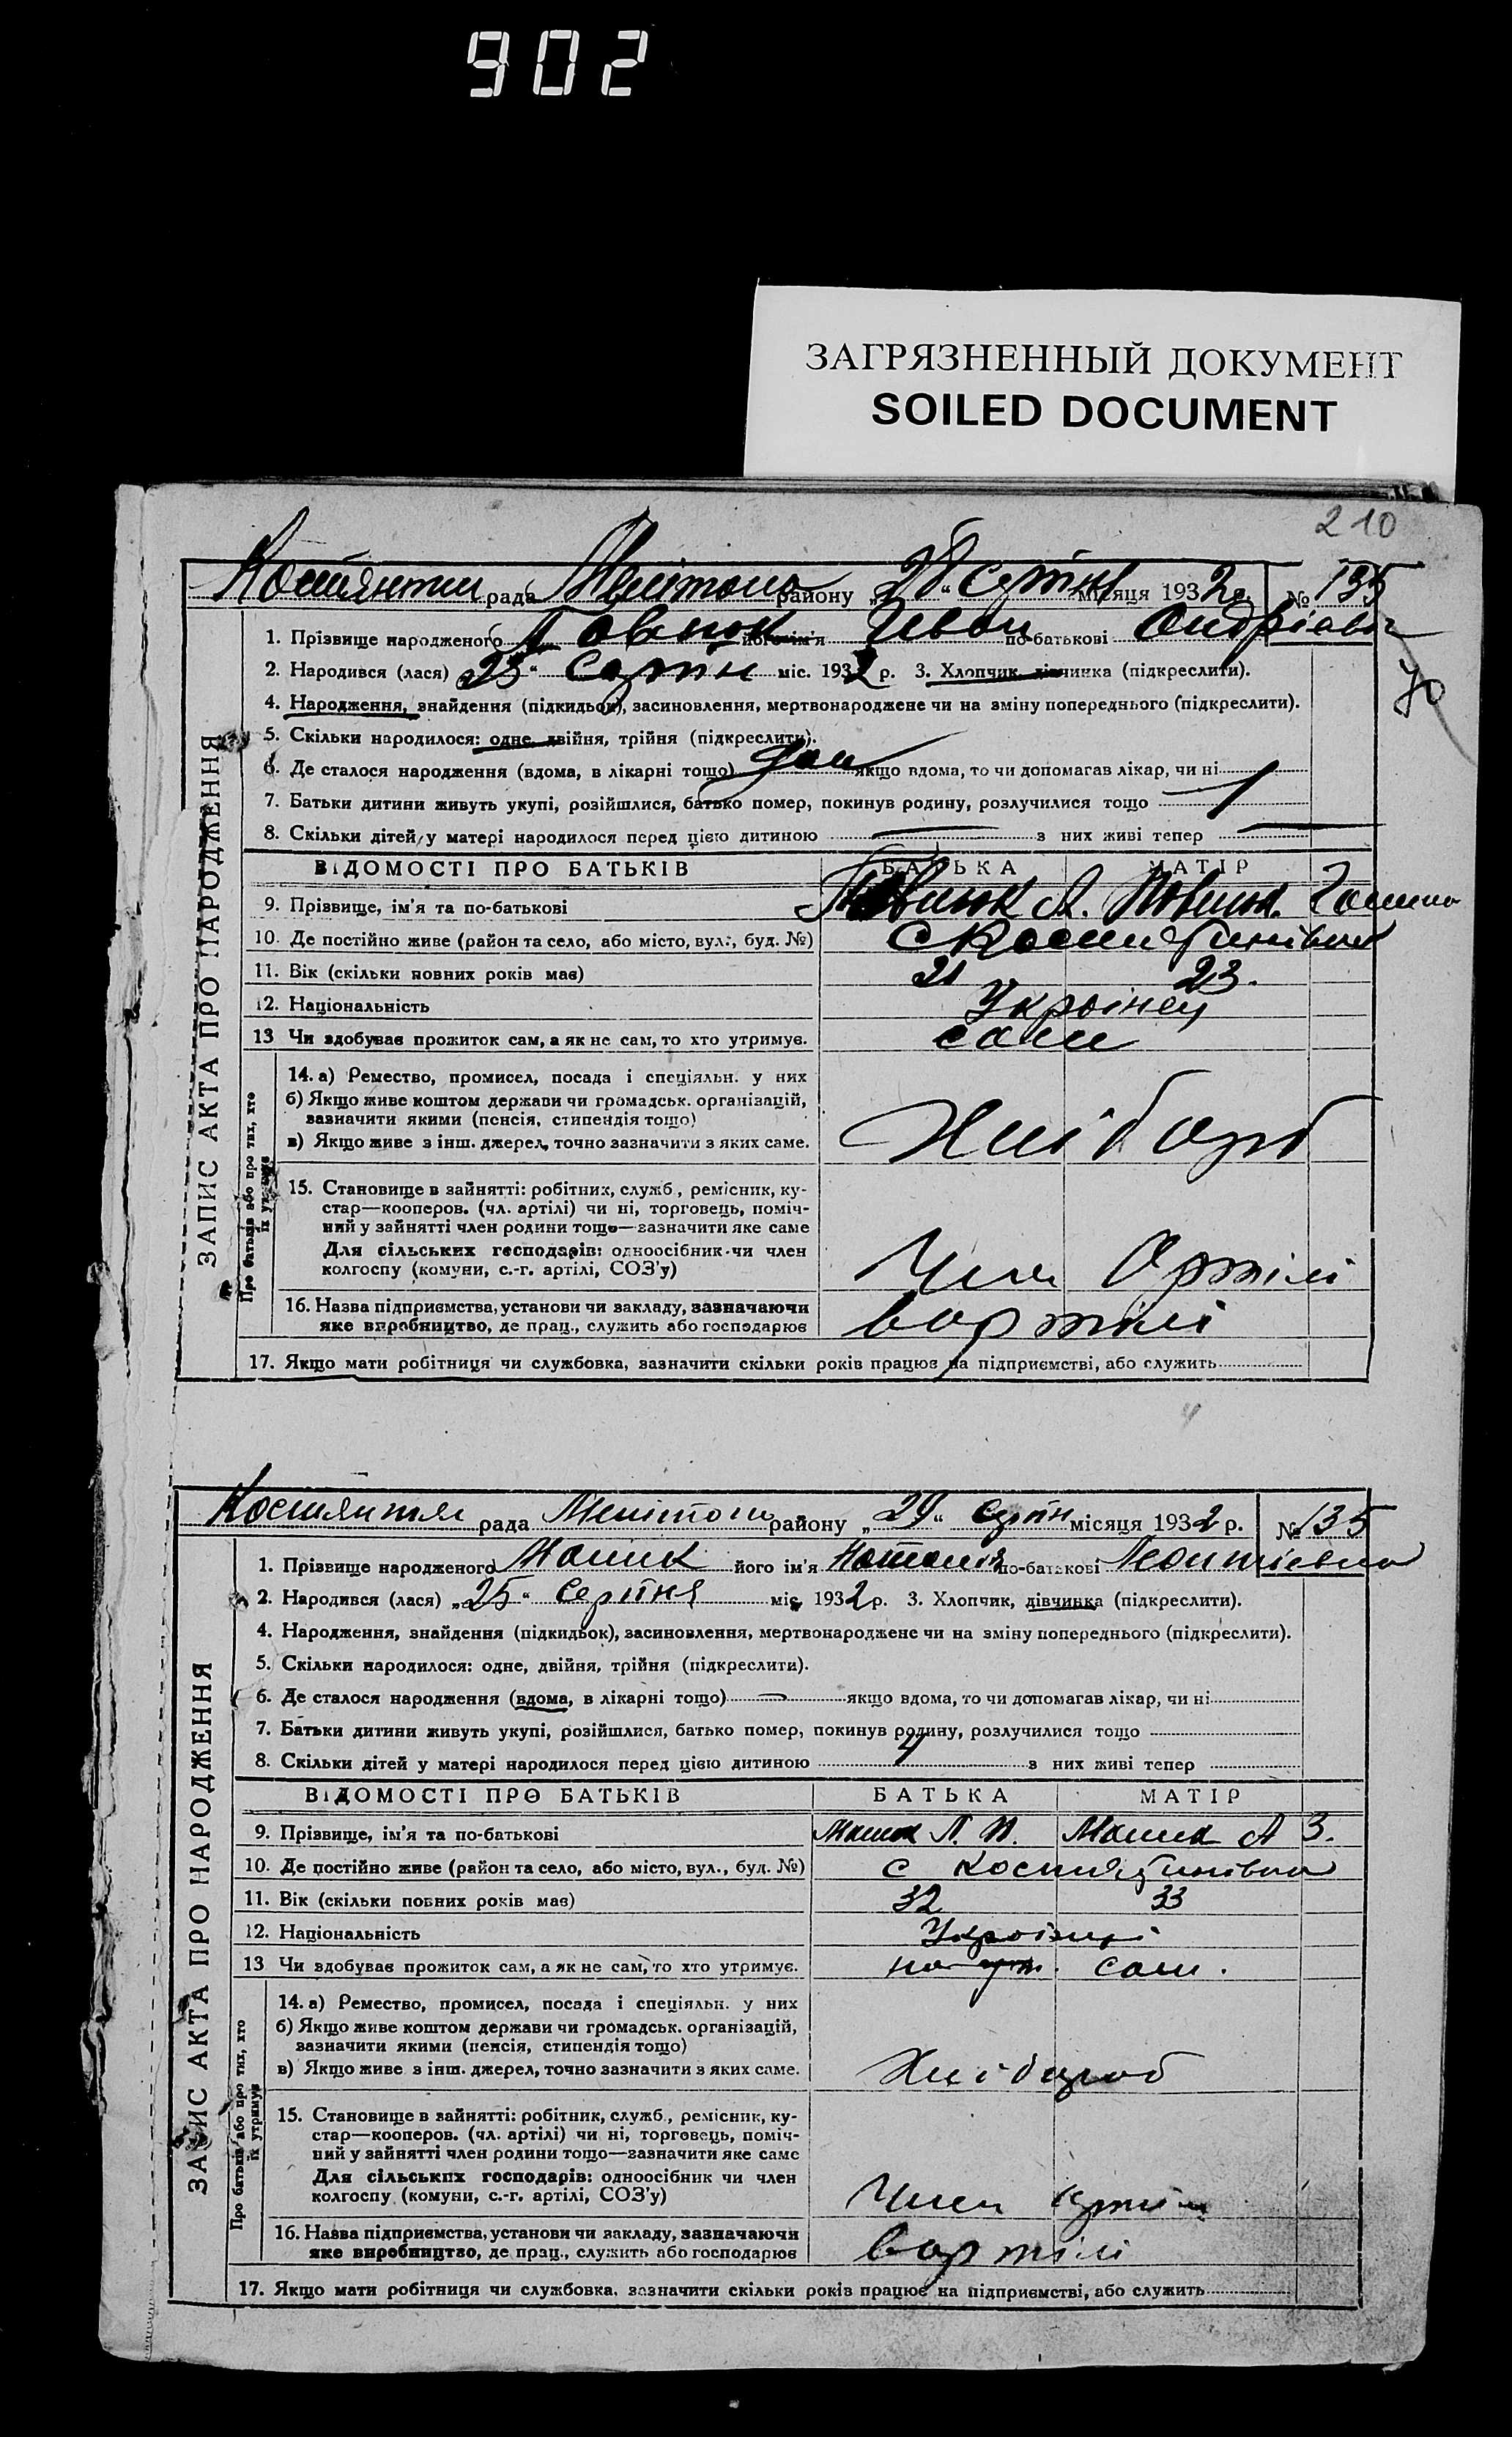 902
ЗАГРЯЗНЕННЫЙ ДОКУМЕНТ
SOILED DOCUMENT
210
рада району „28“ місяця 1932 р. № 135
1. Прізвище народженого його ім'я Іван по-батькові
2. Народився (лася) „23“ міс. 1932 р. 3. Хлопчик, дівчинка (підкреслити).
70
4. Народження, знайдення (підкидьок), засиновлення, мертвонароджене чи на зміну попереднього (підкреслити).
5. Скільки народилося: одне, двійня, трійня (підкреслити).
6. Де сталося народження (вдома, в лікарні тощо) якщо вдома, то чи допомагав лікар, чи ні
7. Батьки дитини живуть укупі, розійшлися, батько помер, покинув родину, розлучилися тощо
8. Скільки дітей у матері народилося перед цією дитиною з них живі тепер
ВІДОМОСТІ ПРО БАТЬКІВ БАТЬКА МАТІР
9. Прізвище, ім'я та по-батькові
10. Де постійно живе (район та село, або місто, вул., буд. №)
11. Вік (скільки повних років має) 21 23.
12. Національність Українец
13 Чи здобуває прожиток сам, а як не сам, то хто утримує. сами
14. а) Ремество, промисел, посада і спеціяльн. у них
б) Якщо живе коштом держави чи громадськ. організацій,
зазначити якими (пенсія, стипендія тощо)
в) Якщо живе з інш. джерел, точно зазначити з яких саме.
Хлібороб
15. Становище в зайнятті: робітник, служб., ремісник, ку-
стар—кооперов. (чл. артілі) чи ні, торговець, поміч-
ний у зайнятті член родини тощо—зазначити яке саме
Для сільських господарів: одноосібник чи член
колгоспу (комуни, с.-г. артілі, СОЗ'у)
Член Артілі
16. Назва підприємства, установи чи закладу, зазначаючи
яке виробництво, де прац., служить або господарює
вартілі
17. Якщо мати робітниця чи службовка, зазначити скільки років працює на підприємстві, або служить
ЗАПИС АКТА ПРО НАРОДЖЕННЯ
Про батьків або про тих, хто
їх утримує
рада району „29“ місяця 1932 р. № 135
1. Прізвище народженого його ім'я Наталія по-батькові
2. Народився (лася) „25“ Серпня міс. 1932 р. 3. Хлопчик, дівчинка (підкреслити).
4. Народження, знайдення (підкидьок), засиновлення, мертвонароджене чи на зміну попереднього (підкреслити).
5. Скільки народилося: одне, двійня, трійня (підкреслити).
6. Де сталося народження (вдома, в лікарні тощо) якщо вдома, то чи допомагав лікар, чи ні
7. Батьки дитини живуть укупі, розійшлися, батько помер, покинув родину, розлучилися тощо
8. Скільки дітей у матері народилося перед цією дитиною 4 з них живі тепер
ВІДОМОСТІ ПРО БАТЬКІВ БАТЬКА МАТІР
9. Прізвище, ім'я та по-батькові
10. Де постійно живе (район та село, або місто, вул., буд. №)
11. Вік (скільки повних років має) 32 33
12. Національність Українці
13 Чи здобуває прожиток сам, а як не сам, то хто утримує. сам.
14. а) Ремество, промисел, посада і спеціяльн. у них
б) Якщо живе коштом держави чи громадськ. організацій,
зазначити якими (пенсія, стипендія тощо)
в) Якщо живе з інш. джерел, точно зазначити з яких саме.
Хлібороб
15. Становище в зайнятті: робітник, служб., ремісник, ку-
стар—кооперов. (чл. артілі) чи ні, торговець, поміч-
ний у зайнятті член родини тощо—зазначити яке саме
Для сільських господарів: одноосібник чи член
колгоспу (комуни, с.-г. артілі, СОЗ'у)
Член артілі
16. Назва підприємства, установи чи закладу, зазначаючи
яке виробництво, де прац., служить або господарює
вартілі
17. Якщо мати робітниця чи службовка, зазначити скільки років працює на підприємстві, або служить
ЗАПИС АКТА ПРО НАРОДЖЕННЯ
Про батьків або про тих, хто
їх утримує